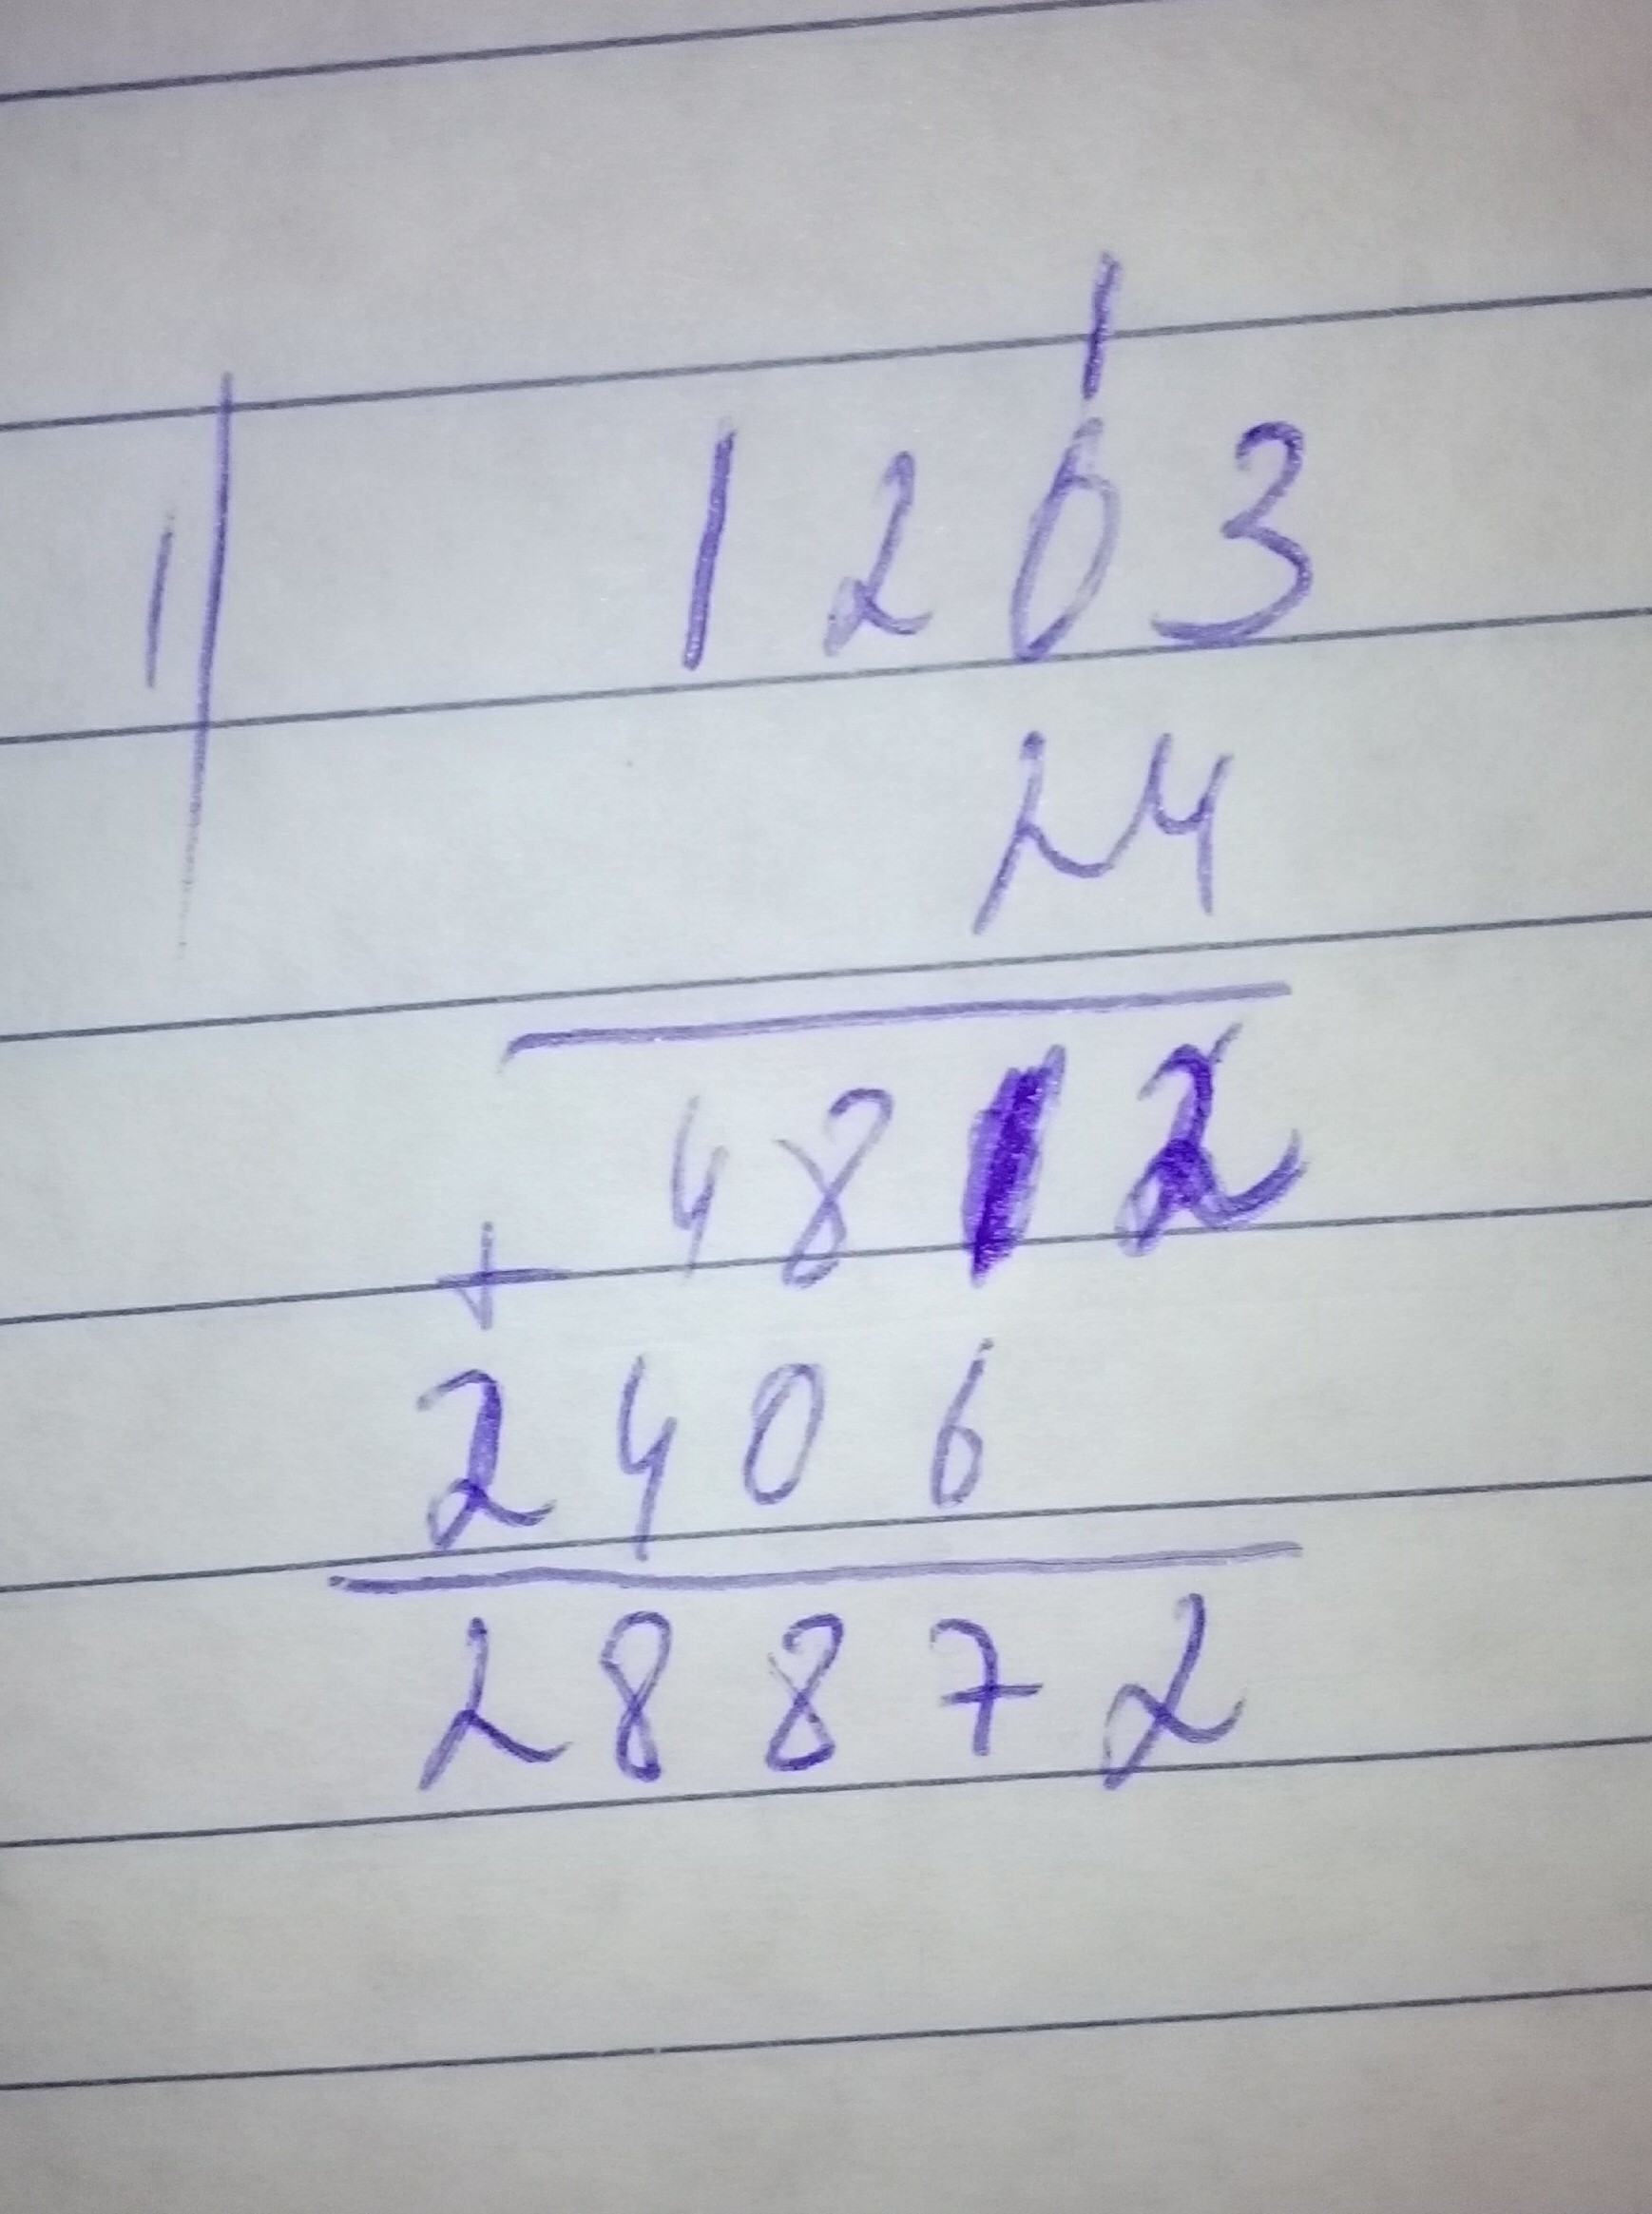 1
1) 1203
24
4812
+
2406
28872